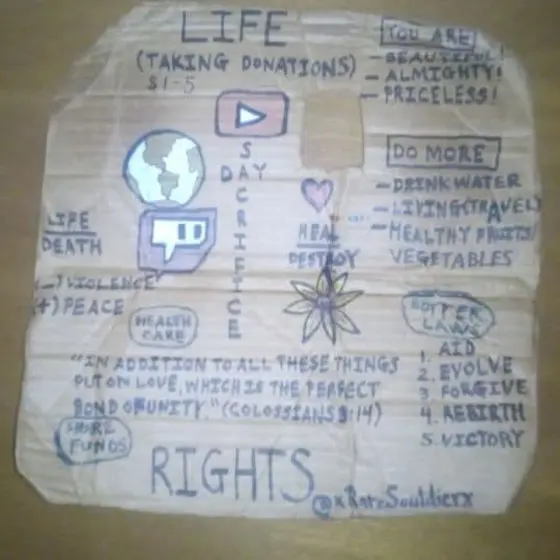 LIFE
(TAKING DONATIONS)
$1-5
YOU ARE
- BEAUTIFUL!
- ALMIGHTY!
- PRICELESS!
SACRIFICE
DAY
DO MORE
- DRINK WATER
- LIVING (TRAVEL)
- HEALTHY FRUITS/
VEGETABLES
LIFE
DEATH
(-) VIOLENCE
(+) PEACE
HEAL
DESTROY
HEALTH
CARE
LAWS
1. AID
2. EVOLVE
3 FORGIVE
4. REBIRTH
5. VICTORY
"IN ADDITION TO ALL THESE THINGS
PUT ON LOVE, WHICH IS THE PERFECT
BOND OF UNITY." (COLOSSIANS 3:14)
SHARE
FUNDS
RIGHTS
@xRareSouldierx